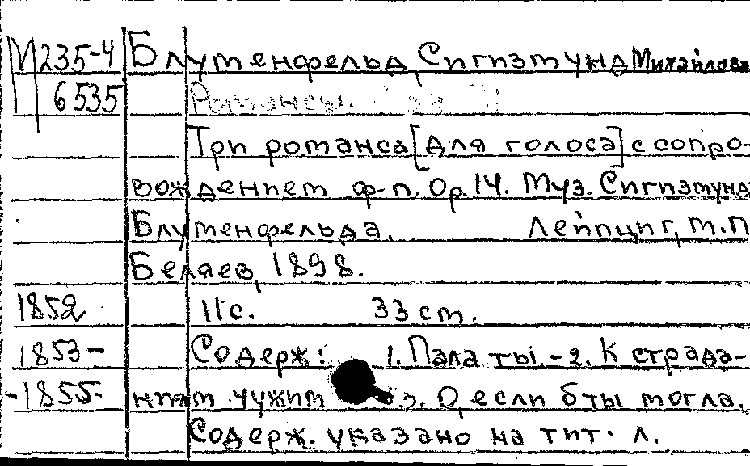 М235-4 Блуменфельд, Сигизмунд Михайлович
6535 Романсы.
Три романса [для голоса] с сопро-
вождением ф-п. Op. 14. Муз. Сигизмунда
Блуменфельда. Лейпциг, М.П.
Беляев, 1898.
1852 11с. 33 см.
1853- Содерж: 1. Пала ты. - 2. К страда-
-1855- ниям чужим 3. О, если б ты могла.
Содерж. указано на тит. л.